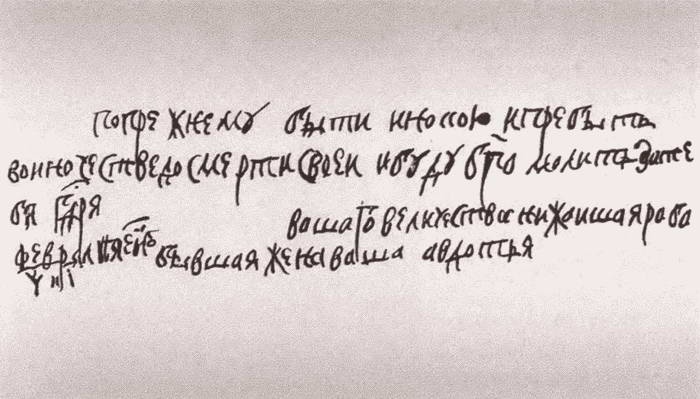 попрежнему быти инокою и пребыть
во иночестве до смерти своеи и буду бга молить за те
бя гдря
вашего величества нижаишая раба
февраля бывшая жена ваша авдотья